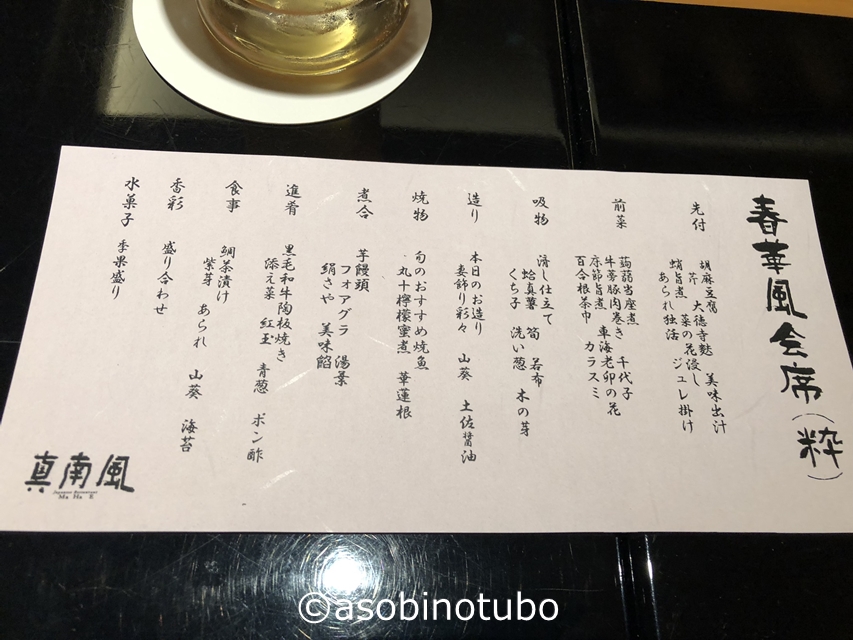 春華風会席(粋)
先付
胡麻豆腐 美味出汁
芹 大徳寺麩 菜の花浸し
蛸旨煮 ジュレ掛け
あられ独活
前菜
蒟蒻当座煮 千代子
牛蒡豚肉巻き 車海老卯の花
床節旨煮 カラスミ
百合根茶巾
吸物
清し仕立て
蛤真薯 筍 若布
くち子 洗い葱 木の芽
造り
本日のお造り
妻飾り彩々 山葵 土佐醤油
焼物
旬のおすすめ焼魚
丸十檸檬蜜煮 華蓮根
煮合
芋饅頭
フォアグラ 湯葉
絹さや 美味餡
進肴
黒毛和牛陶板焼き
添え菜 紅玉 青葱 ポン酢
食事
鯛茶漬け
紫芽 あられ 山葵 海苔
香彩
盛り合わせ
水菓子
季果盛り
真南風
Japanese Restaurant
Ma Ha E
©asobinotubo